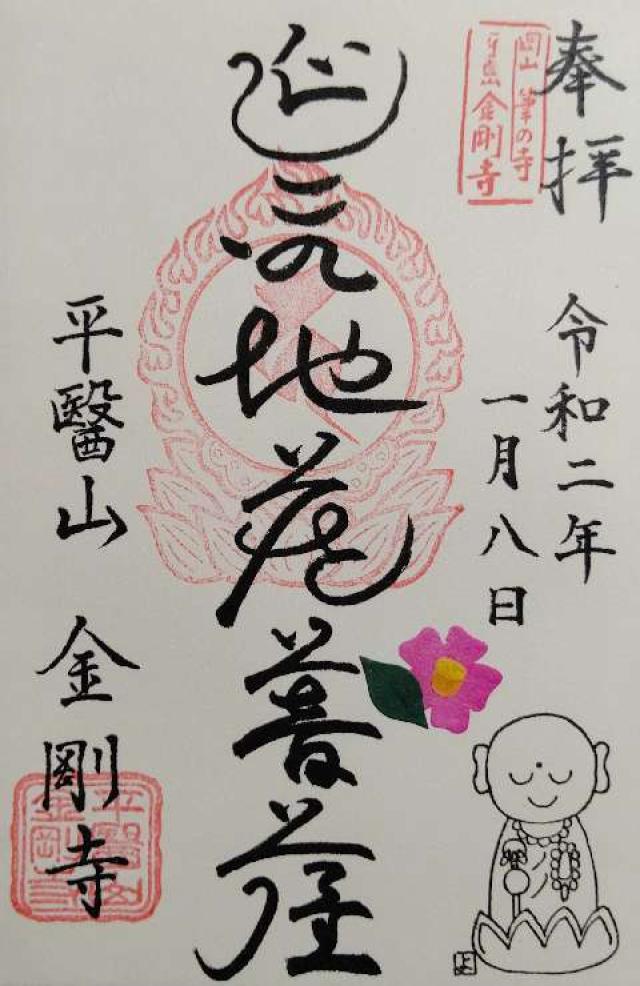 奉拝
岡山 筆の寺
金剛寺
令和二年
一月八日
延命地蔵菩薩
平醫山 金剛寺
平醫山
金剛寺